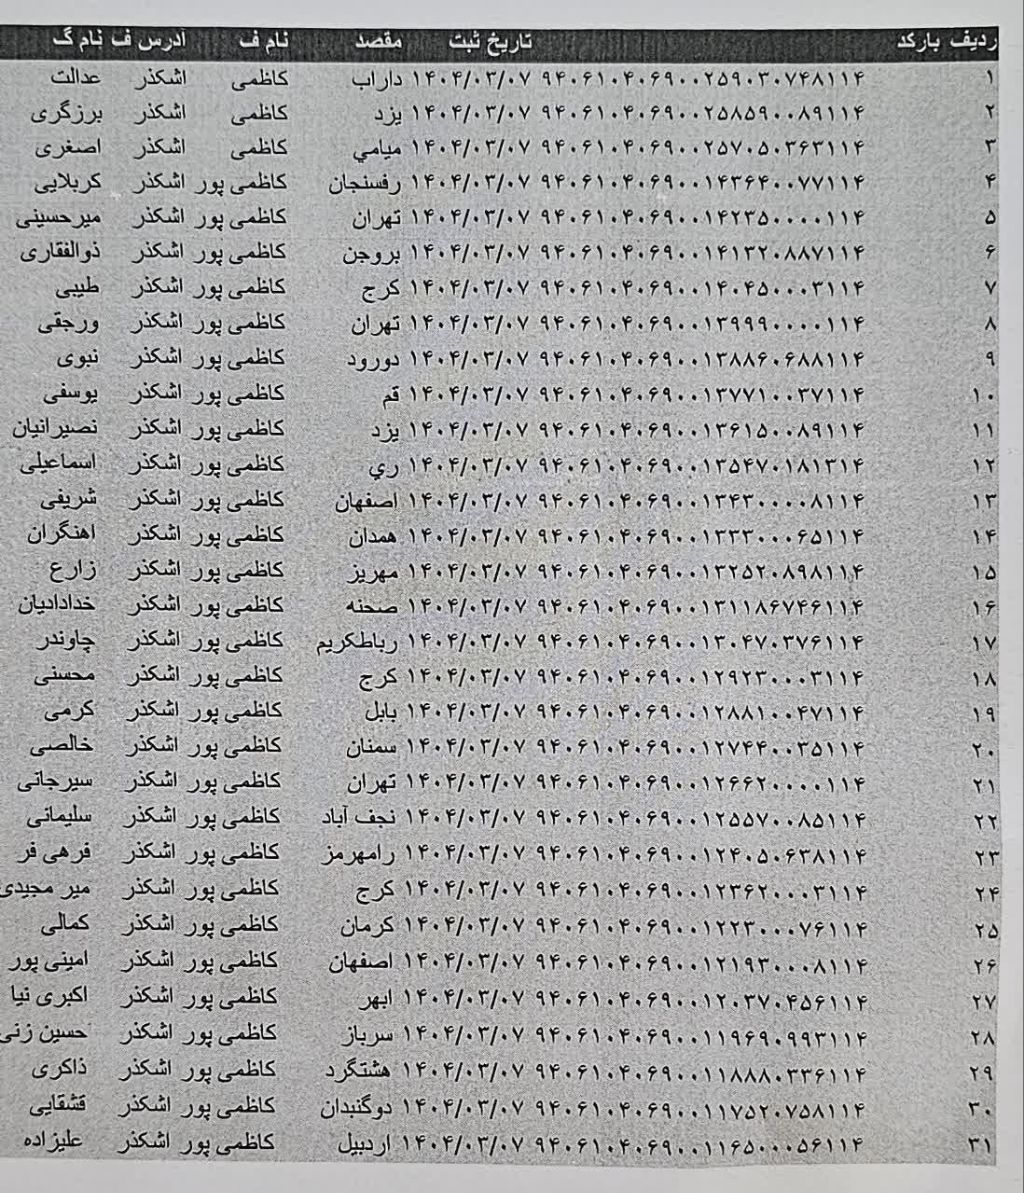 ردیف بارکد تاریخ ثبت مقصد نام ف آدرس ف نام گ
۱ ۹۴۰۶۱۰۴۰۶۹۰۰۲۵۹۰۳۰۷۴۸۱۱۴ ۱۴۰۴/۰۳/۰۷ داراب کاظمی اشکذر عدالت
۲ ۹۴۰۶۱۰۴۰۶۹۰۰۲۵۸۵۹۰۰۸۹۱۱۴ ۱۴۰۴/۰۳/۰۷ یزد کاظمی اشکذر برزگری
۳ ۹۴۰۶۱۰۴۰۶۹۰۰۲۵۷۰۵۰۳۶۳۱۱۴ ۱۴۰۴/۰۳/۰۷ ميامي کاظمی اشکذر اصغری
۴ ۹۴۰۶۱۰۴۰۶۹۰۰۱۴۳۶۴۰۰۷۷۱۱۴ ۱۴۰۴/۰۳/۰۷ رفسنجان کاظمی پور اشکذر کربلایی
۵ ۹۴۰۶۱۰۴۰۶۹۰۰۱۴۲۳۵۰۰۰۰۱۱۴ ۱۴۰۴/۰۳/۰۷ تهران کاظمی پور اشکذر میرحسینی
۶ ۹۴۰۶۱۰۴۰۶۹۰۰۱۴۱۳۲۰۸۸۷۱۱۴ ۱۴۰۴/۰۳/۰۷ بروجن کاظمی پور اشکذر ذوالفقاری
۷ ۹۴۰۶۱۰۴۰۶۹۰۰۱۴۰۴۵۰۰۰۳۱۱۴ ۱۴۰۴/۰۳/۰۷ کرج کاظمی پور اشکذر طیبی
۸ ۹۴۰۶۱۰۴۰۶۹۰۰۱۳۹۹۹۰۰۰۰۱۱۴ ۱۴۰۴/۰۳/۰۷ تهران کاظمی پور اشکذر ورجقی
۹ ۹۴۰۶۱۰۴۰۶۹۰۰۱۳۸۸۶۰۶۸۸۱۱۴ ۱۴۰۴/۰۳/۰۷ دورود کاظمی پور اشکذر نبوی
۱۰ ۹۴۰۶۱۰۴۰۶۹۰۰۱۳۷۷۱۰۰۳۷۱۱۴ ۱۴۰۴/۰۳/۰۷ قم کاظمی پور اشکذر یوسفی
۱۱ ۹۴۰۶۱۰۴۰۶۹۰۰۱۳۶۱۵۰۰۸۹۱۱۴ ۱۴۰۴/۰۳/۰۷ یزد کاظمی پور اشکذر نصیرانیان
۱۲ ۹۴۰۶۱۰۴۰۶۹۰۰۱۳۵۴۷۰۱۸۱۳۱۴ ۱۴۰۴/۰۳/۰۷ ري کاظمی پور اشکذر اسماعیلی
۱۳ ۹۴۰۶۱۰۴۰۶۹۰۰۱۳۴۳۰۰۰۰۸۱۱۴ ۱۴۰۴/۰۳/۰۷ اصفهان کاظمی پور اشکذر شریفی
۱۴ ۹۴۰۶۱۰۴۰۶۹۰۰۱۳۳۳۰۰۰۶۵۱۱۴ ۱۴۰۴/۰۳/۰۷ همدان کاظمی پور اشکذر اهنگران
۱۵ ۹۴۰۶۱۰۴۰۶۹۰۰۱۳۲۵۲۰۸۹۸۱۱۴ ۱۴۰۴/۰۳/۰۷ مهریز کاظمی پور اشکذر زارع
۱۶ ۹۴۰۶۱۰۴۰۶۹۰۰۱۳۱۱۸۶۷۴۶۱۱۴ ۱۴۰۴/۰۳/۰۷ صحنه کاظمی پور اشکذر خدادادیان
۱۷ ۹۴۰۶۱۰۴۰۶۹۰۰۱۳۰۴۷۰۳۷۶۱۱۴ ۱۴۰۴/۰۳/۰۷ رباطکریم کاظمی پور اشکذر چاوندر
۱۸ ۹۴۰۶۱۰۴۰۶۹۰۰۱۲۹۲۳۰۰۰۳۱۱۴ ۱۴۰۴/۰۳/۰۷ کرج کاظمی پور اشکذر محسنی
۱۹ ۹۴۰۶۱۰۴۰۶۹۰۰۱۲۸۸۱۰۰۴۷۱۱۴ ۱۴۰۴/۰۳/۰۷ بابل کاظمی پور اشکذر کرمی
۲۰ ۹۴۰۶۱۰۴۰۶۹۰۰۱۲۷۴۴۰۰۳۵۱۱۴ ۱۴۰۴/۰۳/۰۷ سمنان کاظمی پور اشکذر خالصی
۲۱ ۹۴۰۶۱۰۴۰۶۹۰۰۱۲۶۶۲۰۰۰۰۱۱۴ ۱۴۰۴/۰۳/۰۷ تهران کاظمی پور اشکذر سیرجانی
۲۲ ۹۴۰۶۱۰۴۰۶۹۰۰۱۲۵۵۷۰۰۸۵۱۱۴ ۱۴۰۴/۰۳/۰۷ نجف آباد کاظمی پور اشکذر سلیمانی
۲۳ ۹۴۰۶۱۰۴۰۶۹۰۰۱۲۴۰۵۰۶۳۸۱۱۴ ۱۴۰۴/۰۳/۰۷ رامهرمز کاظمی پور اشکذر فرهی فر
۲۴ ۹۴۰۶۱۰۴۰۶۹۰۰۱۲۳۶۲۰۰۰۳۱۱۴ ۱۴۰۴/۰۳/۰۷ کرج کاظمی پور اشکذر میر مجیدی
۲۵ ۹۴۰۶۱۰۴۰۶۹۰۰۱۲۲۳۰۰۰۷۶۱۱۴ ۱۴۰۴/۰۳/۰۷ کرمان کاظمی پور اشکذر کمالی
۲۶ ۹۴۰۶۱۰۴۰۶۹۰۰۱۲۱۹۳۰۰۰۸۱۱۴ ۱۴۰۴/۰۳/۰۷ اصفهان کاظمی پور اشکذر امینی پور
۲۷ ۹۴۰۶۱۰۴۰۶۹۰۰۱۲۰۳۷۰۴۵۶۱۱۴ ۱۴۰۴/۰۳/۰۷ ابهر کاظمی پور اشکذر اکبری نیا
۲۸ ۹۴۰۶۱۰۴۰۶۹۰۰۱۱۹۶۹۰۹۹۳۱۱۴ ۱۴۰۴/۰۳/۰۷ سرباز کاظمی پور اشکذر حسین زنی
۲۹ ۹۴۰۶۱۰۴۰۶۹۰۰۱۱۸۸۸۰۳۳۶۱۱۴ ۱۴۰۴/۰۳/۰۷ هشتگرد کاظمی پور اشکذر ذاکری
۳۰ ۹۴۰۶۱۰۴۰۶۹۰۰۱۱۷۵۲۰۷۵۸۱۱۴ ۱۴۰۴/۰۳/۰۷ دوگنبدان کاظمی پور اشکذر قشقایی
۳۱ ۹۴۰۶۱۰۴۰۶۹۰۰۱۱۶۵۰۰۰۵۶۱۱۴ ۱۴۰۴/۰۳/۰۷ اردبیل کاظمی پور اشکذر علیزاده